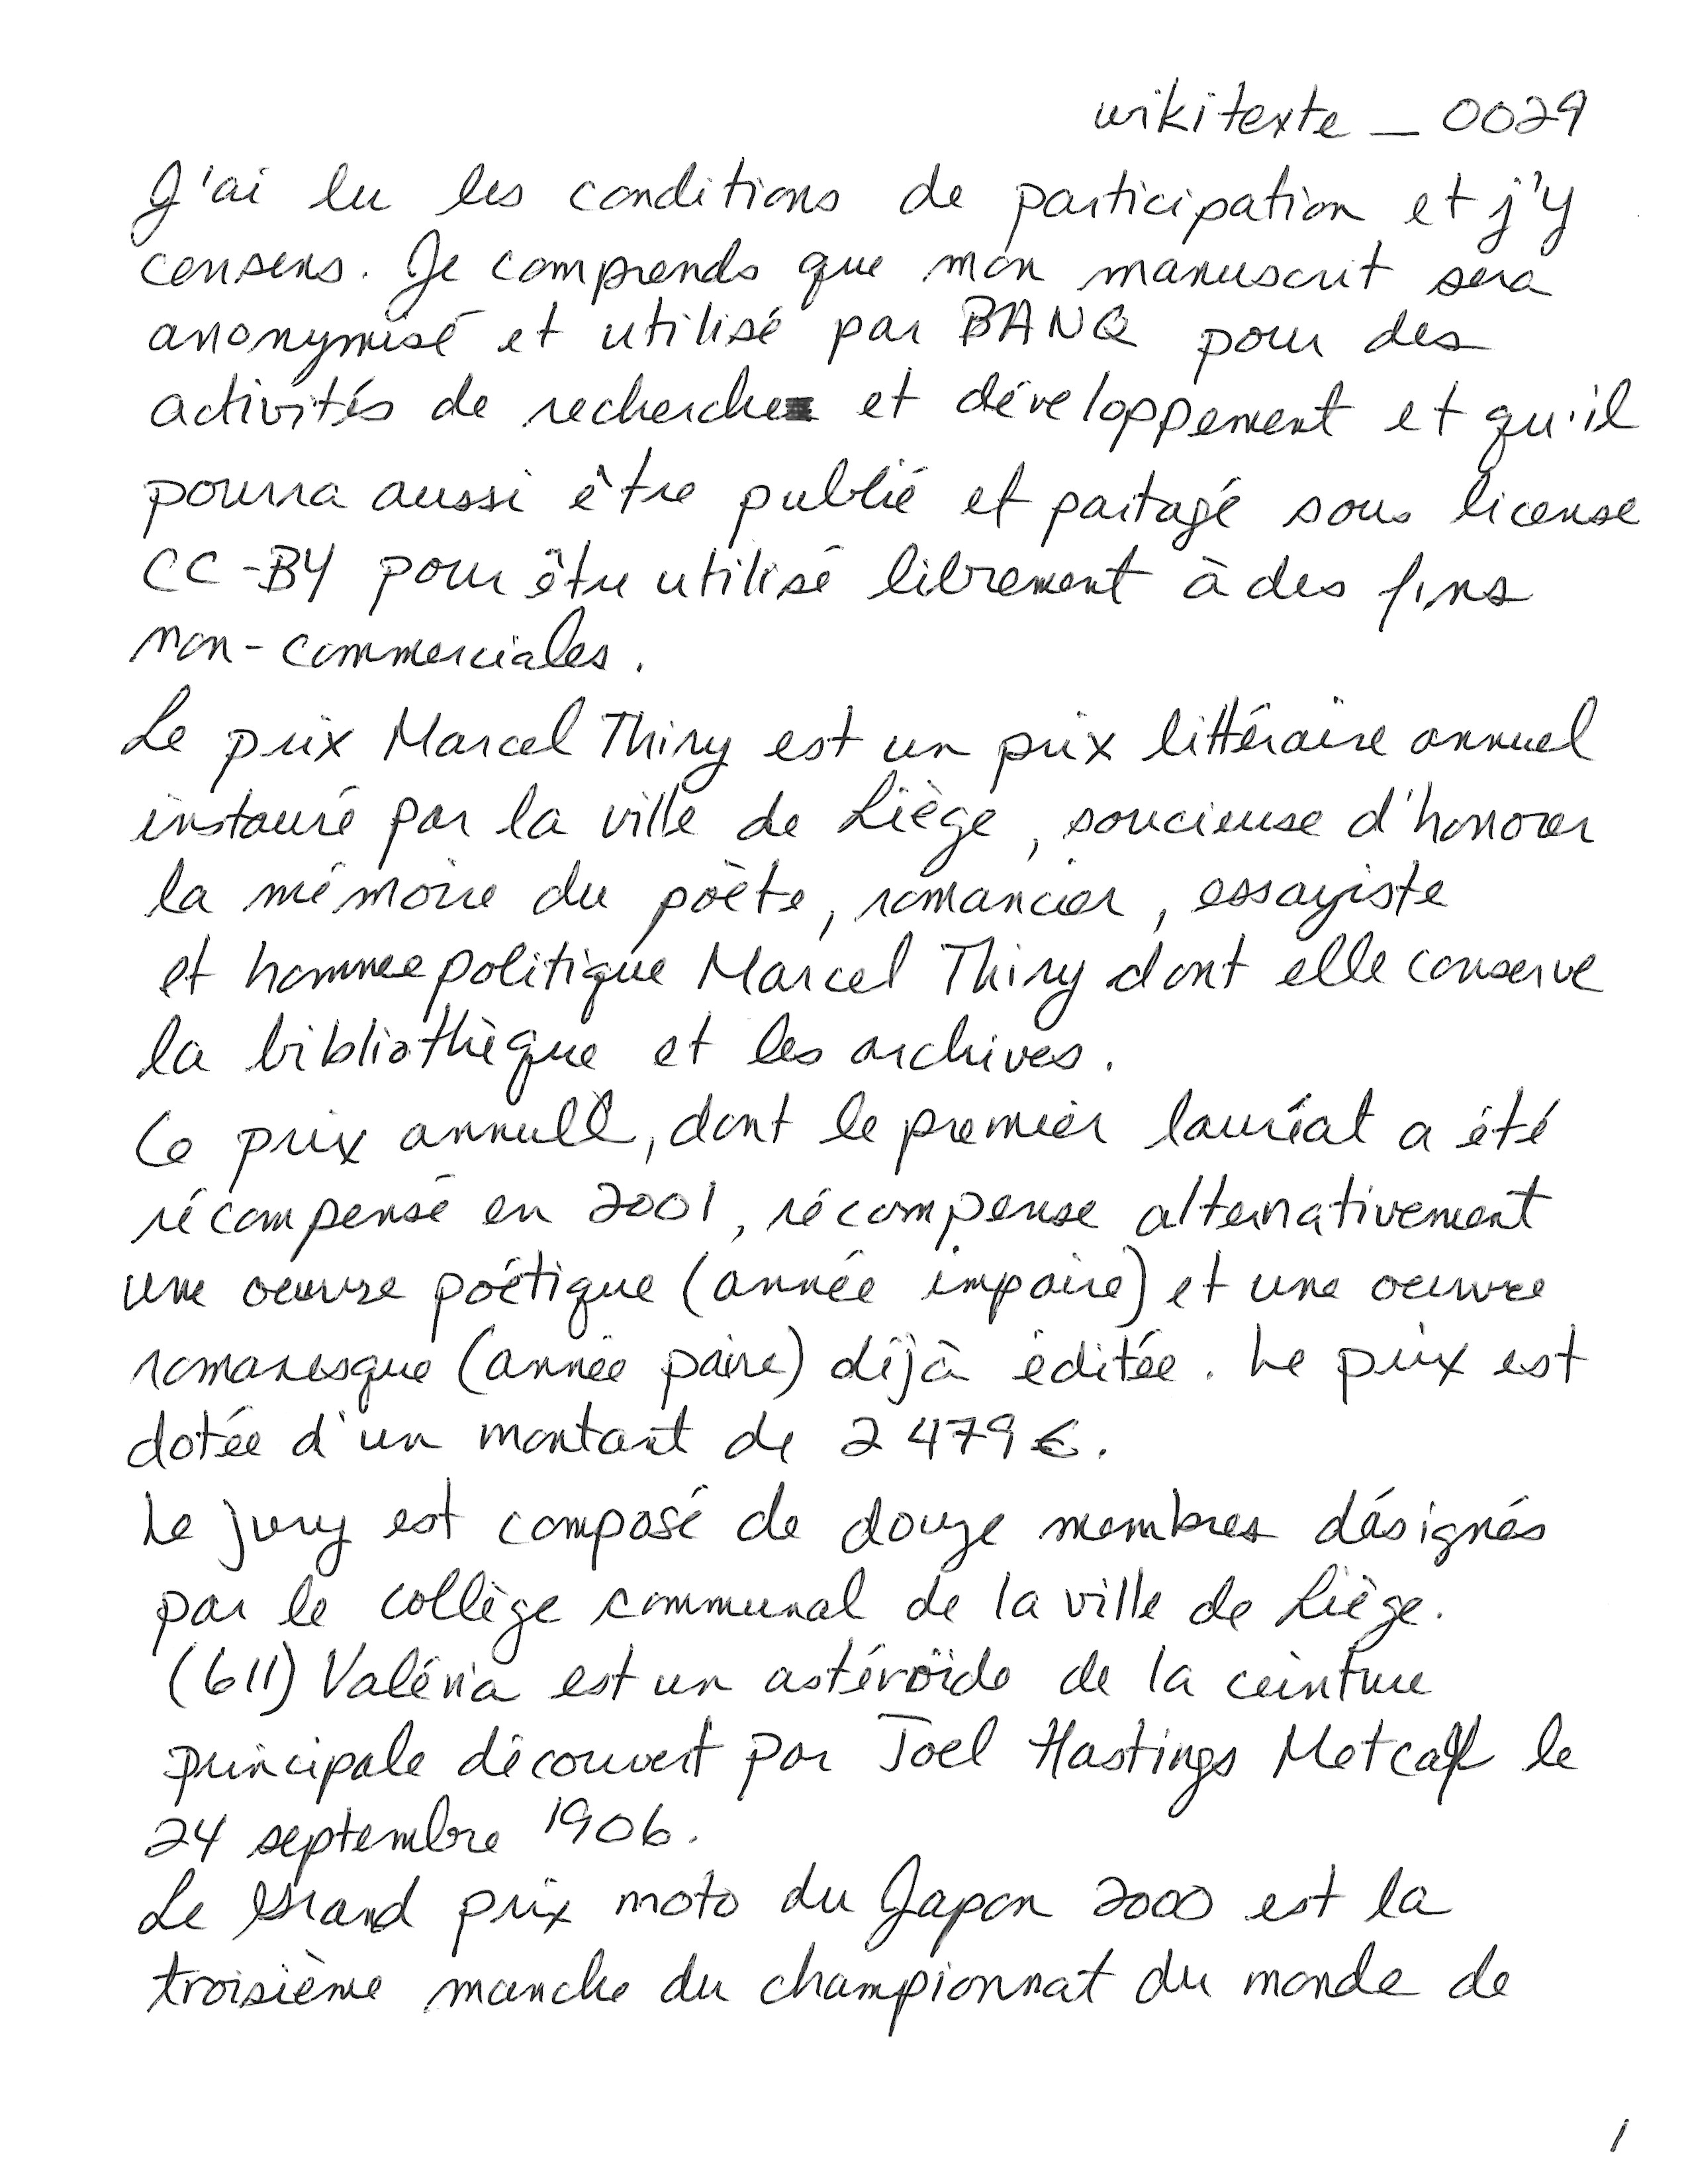 wikitexte_0029
J'ai lu les conditions de participation et j'y
consens. Je comprends que mon manuscrit sera
anonymisé et utilisé par BANQ pour des
activités de recherche et développement et qu'il
pourra aussi être publié et partagé sous license
CC-BY pour être utilisé librement à des fins
non-commerciales.
Le prix Marcel Thiry est un prix littéraire annuel
instauré par la ville de Liège, soucieuse d'honorer
la mémoire du poète, romancier, essayiste
et homme politique Marcel Thiry dont elle conserve
la bibliothèque et les archives.
Ce prix annuel, dont le premier lauréat a été
récompensé en 2001, récompense alternativement
une oeuvre poétique (année impaire) et une oeuvre
romanesque (année paire) déjà éditée. Le prix est
dotée d'un montant de 2 479 €.
Le jury est composé de douze membres désignés
par le collège communal de la ville de Liège.
(611) Valéria est un astéroïde de la ceinture
principale découvert par Joel Hastings Metcalf le
24 septembre 1906.
Le Grand prix moto du Japon 2000 est la
troisième manche du championnat du monde de
1